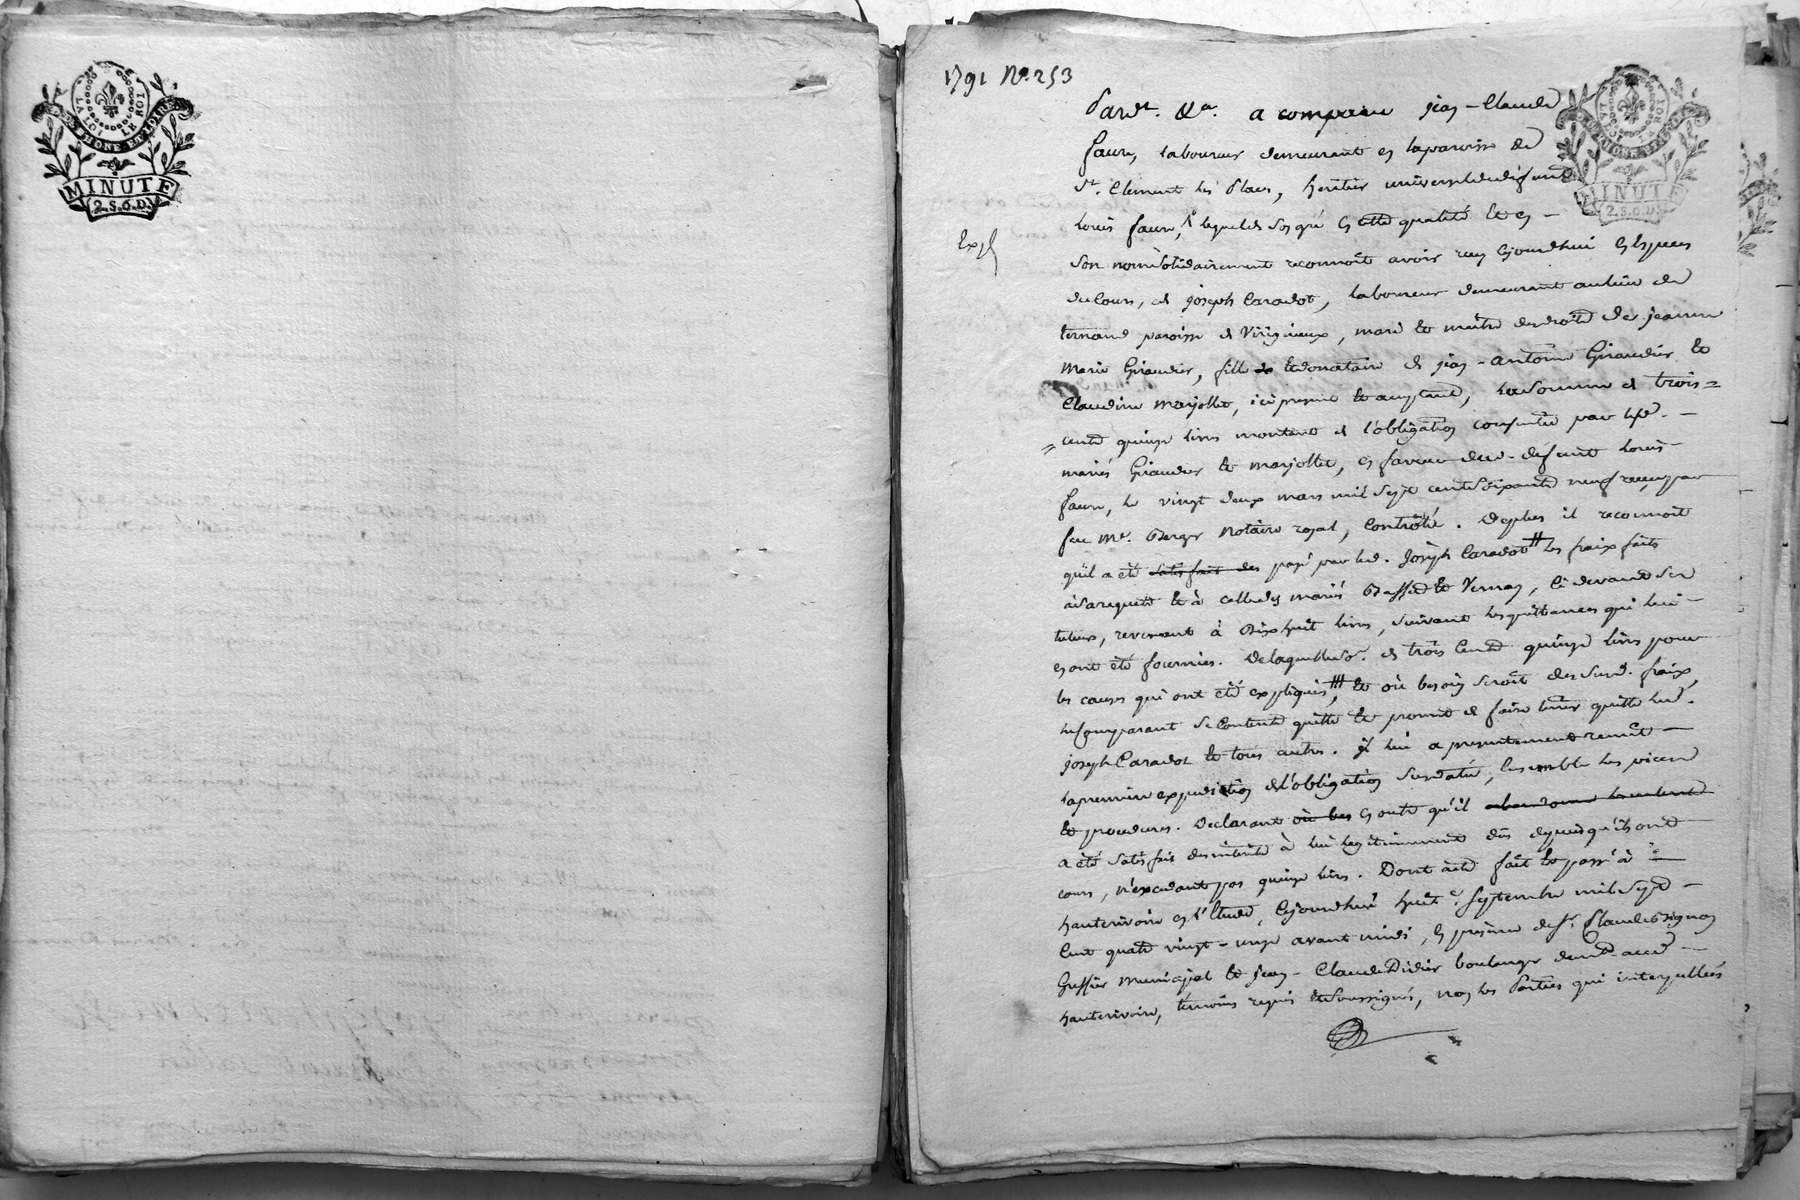 LA LOI LE ROI
RHONE ET LOIRE
MINUTE
2.S.6.D.
1791 N°. 253
LA LOI LE ROI
MINUTE
2.S.6.D.
Pard^t. &^a. a comparu jean-Claude
faure, laboureur demeurant en la paroisse de
S^t. Clement les Places, heritier universel de defunt
Louis faure, lequel de son gré en cette qualité et en -
Exp^é
son nom solidairement reconnoît avoir reçu cejourdhui en especes
de cours, de joseph Caradot, laboureur demeurant au lieu de
ternand paroisse de Virigneux, mari et maître des droits de jeanne
Marie Giraudier, fille et donataire de jean-antoine Giraudier et
Claudine marjollet, ici present et acceptant, la somme de trois=
=cents quinze livres montant de l'obligation consentie par lesd. -
mariés Giraudier et marjollet, en faveur dud. défunt Louis
faure, le vingt deux mars mil sept cent soixante neuf reçue par
feu M^e. Berger Notaire royal, Controllé. De plus il reconnoit
qu'il a été satisfait des payé par led. Joseph Caradot # les fraix faits
à sa requete et à celle des mariés et Vernay, ci devant ses
tuteurs, revenant à dix huit livres, suivant les quittances qui lui
en ont été fournies. De laquelle so^e. de trois Cents quinze livres pour
les causes qui ont été expliqués, et où besoin seroit des susd. fraix
le comparant se contente quitte et promet de faire tenir quitte led.
joseph Caradot et tous autres. Il lui a presentement remit -
la premiere expedition de l'obligation susdatée, ensemble les pieces
et procedures. Declarant en outre qu'il
a été satisfait des intérêts à lui legitimement dûs depuis qu'ils ont
cours, n'excedant pas quinze livres. Dont acte fait et passé à
hauterivoire en l'Etude, cejourdhui huit^e. Septembre mil sept -
Cent quatre vingt-onze avant midi, en presence de s^r. Claude
Greffier municipal et jean-Claude Didier boulanger dem^t. aud. -
hauterivoire, temoins requis et soussignés, non les Parties qui interpellées